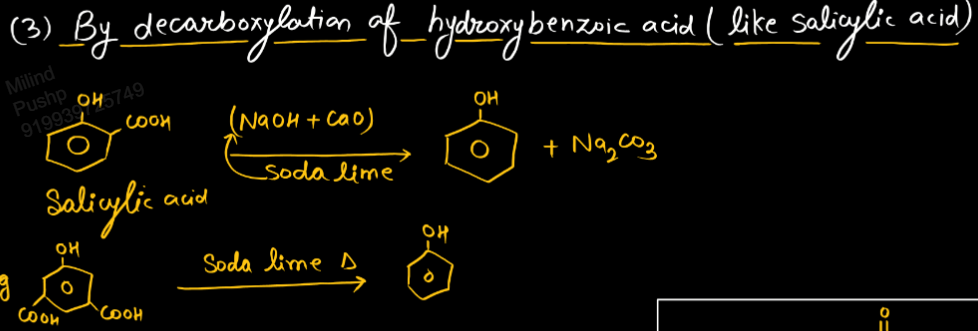 (3) By decarboxylation of hydroxybenzoic acid (like salicylic acid)
Milind
Pushp
OH
COOH
(NaOH + CaO)
soda lime
OH
+ Na₂CO₃
Salicylic acid
OH
COOH
COOH
Soda lime Δ
OH
O